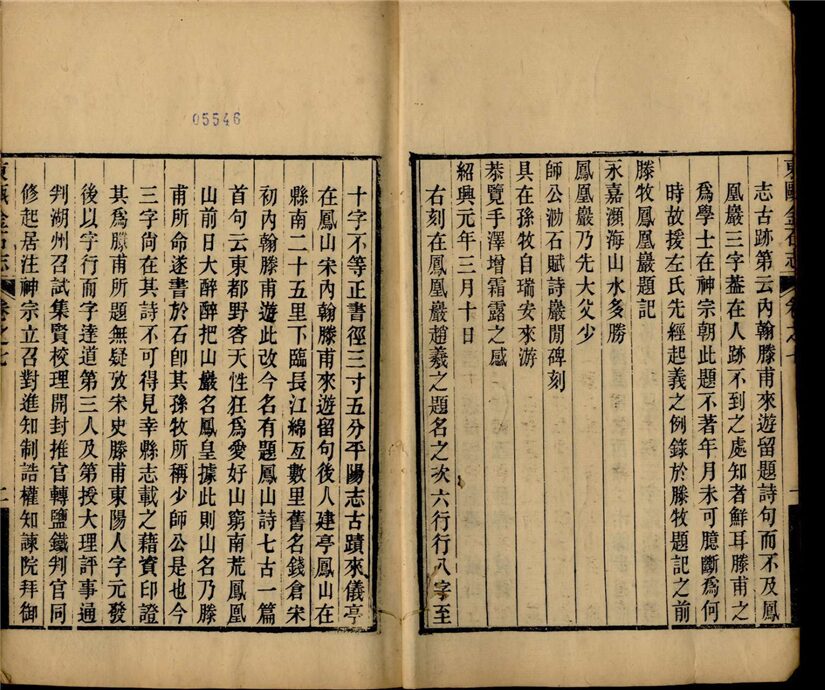 東甌金石志
卷之七
志古跡第云內翰滕甫來遊留題詩句而不及鳳
凰巖三字葢在人跡不到之處知者鮮耳滕甫之
爲學士在神宗朝此題不著年月未可臆斷爲何
時故援左氏先經起義之例錄於滕牧題記之前
滕牧鳳凰巖題記
永嘉瀕海山水多勝
鳳凰巖乃先大父少
師公泐石賦詩巖閒碑刻
具在孫牧自瑞安來游
恭覽手澤增霜露之感
紹興元年三月十日
右刻在鳳凰巖趙羲之題名之次六行行八字至
05546
十字不等正書徑三寸五分平陽志古蹟來儀亭
在鳳山宋內翰滕甫來遊留句後人建亭鳳山在
縣南二十五里下臨長江綿亙數里舊名錢倉宋
初內翰滕甫遊此改今名有題鳳山詩七古一篇
首句云東都野客天性狂爲愛好山窮南荒鳳凰
山前日大醉醉把山巖名鳳皇據此則山名乃滕
甫所命遂書於石卽其孫牧所稱少師公是也今
三字尙在其詩不可得見幸縣志載之藉資印證
其爲滕甫所題無疑攷宋史滕甫東陽人字元發
後以字行而字達道第三人及第授大理評事通
判湖州召試集賢校理開封推官轉鹽鐵判官同
修起居注神宗立召對進知制誥權知諫院拜御
東甌金石志
卷之七